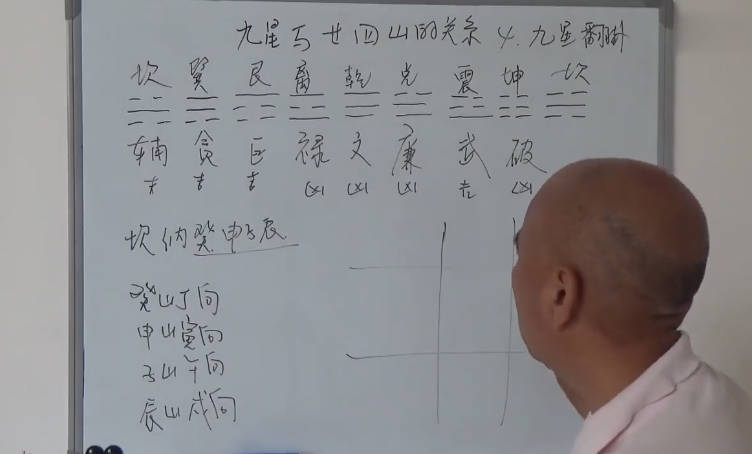 九星与廿四山的关系 4.九星翻卦
坎 巽 艮 离 乾 兑 震 坤 坎
辅 贪 巨 禄 文 廉 武 破
吉 吉 吉 凶 凶 凶 吉 凶
坎纳癸申子辰
癸山丁向
申山寅向
子山午向
辰山戌向